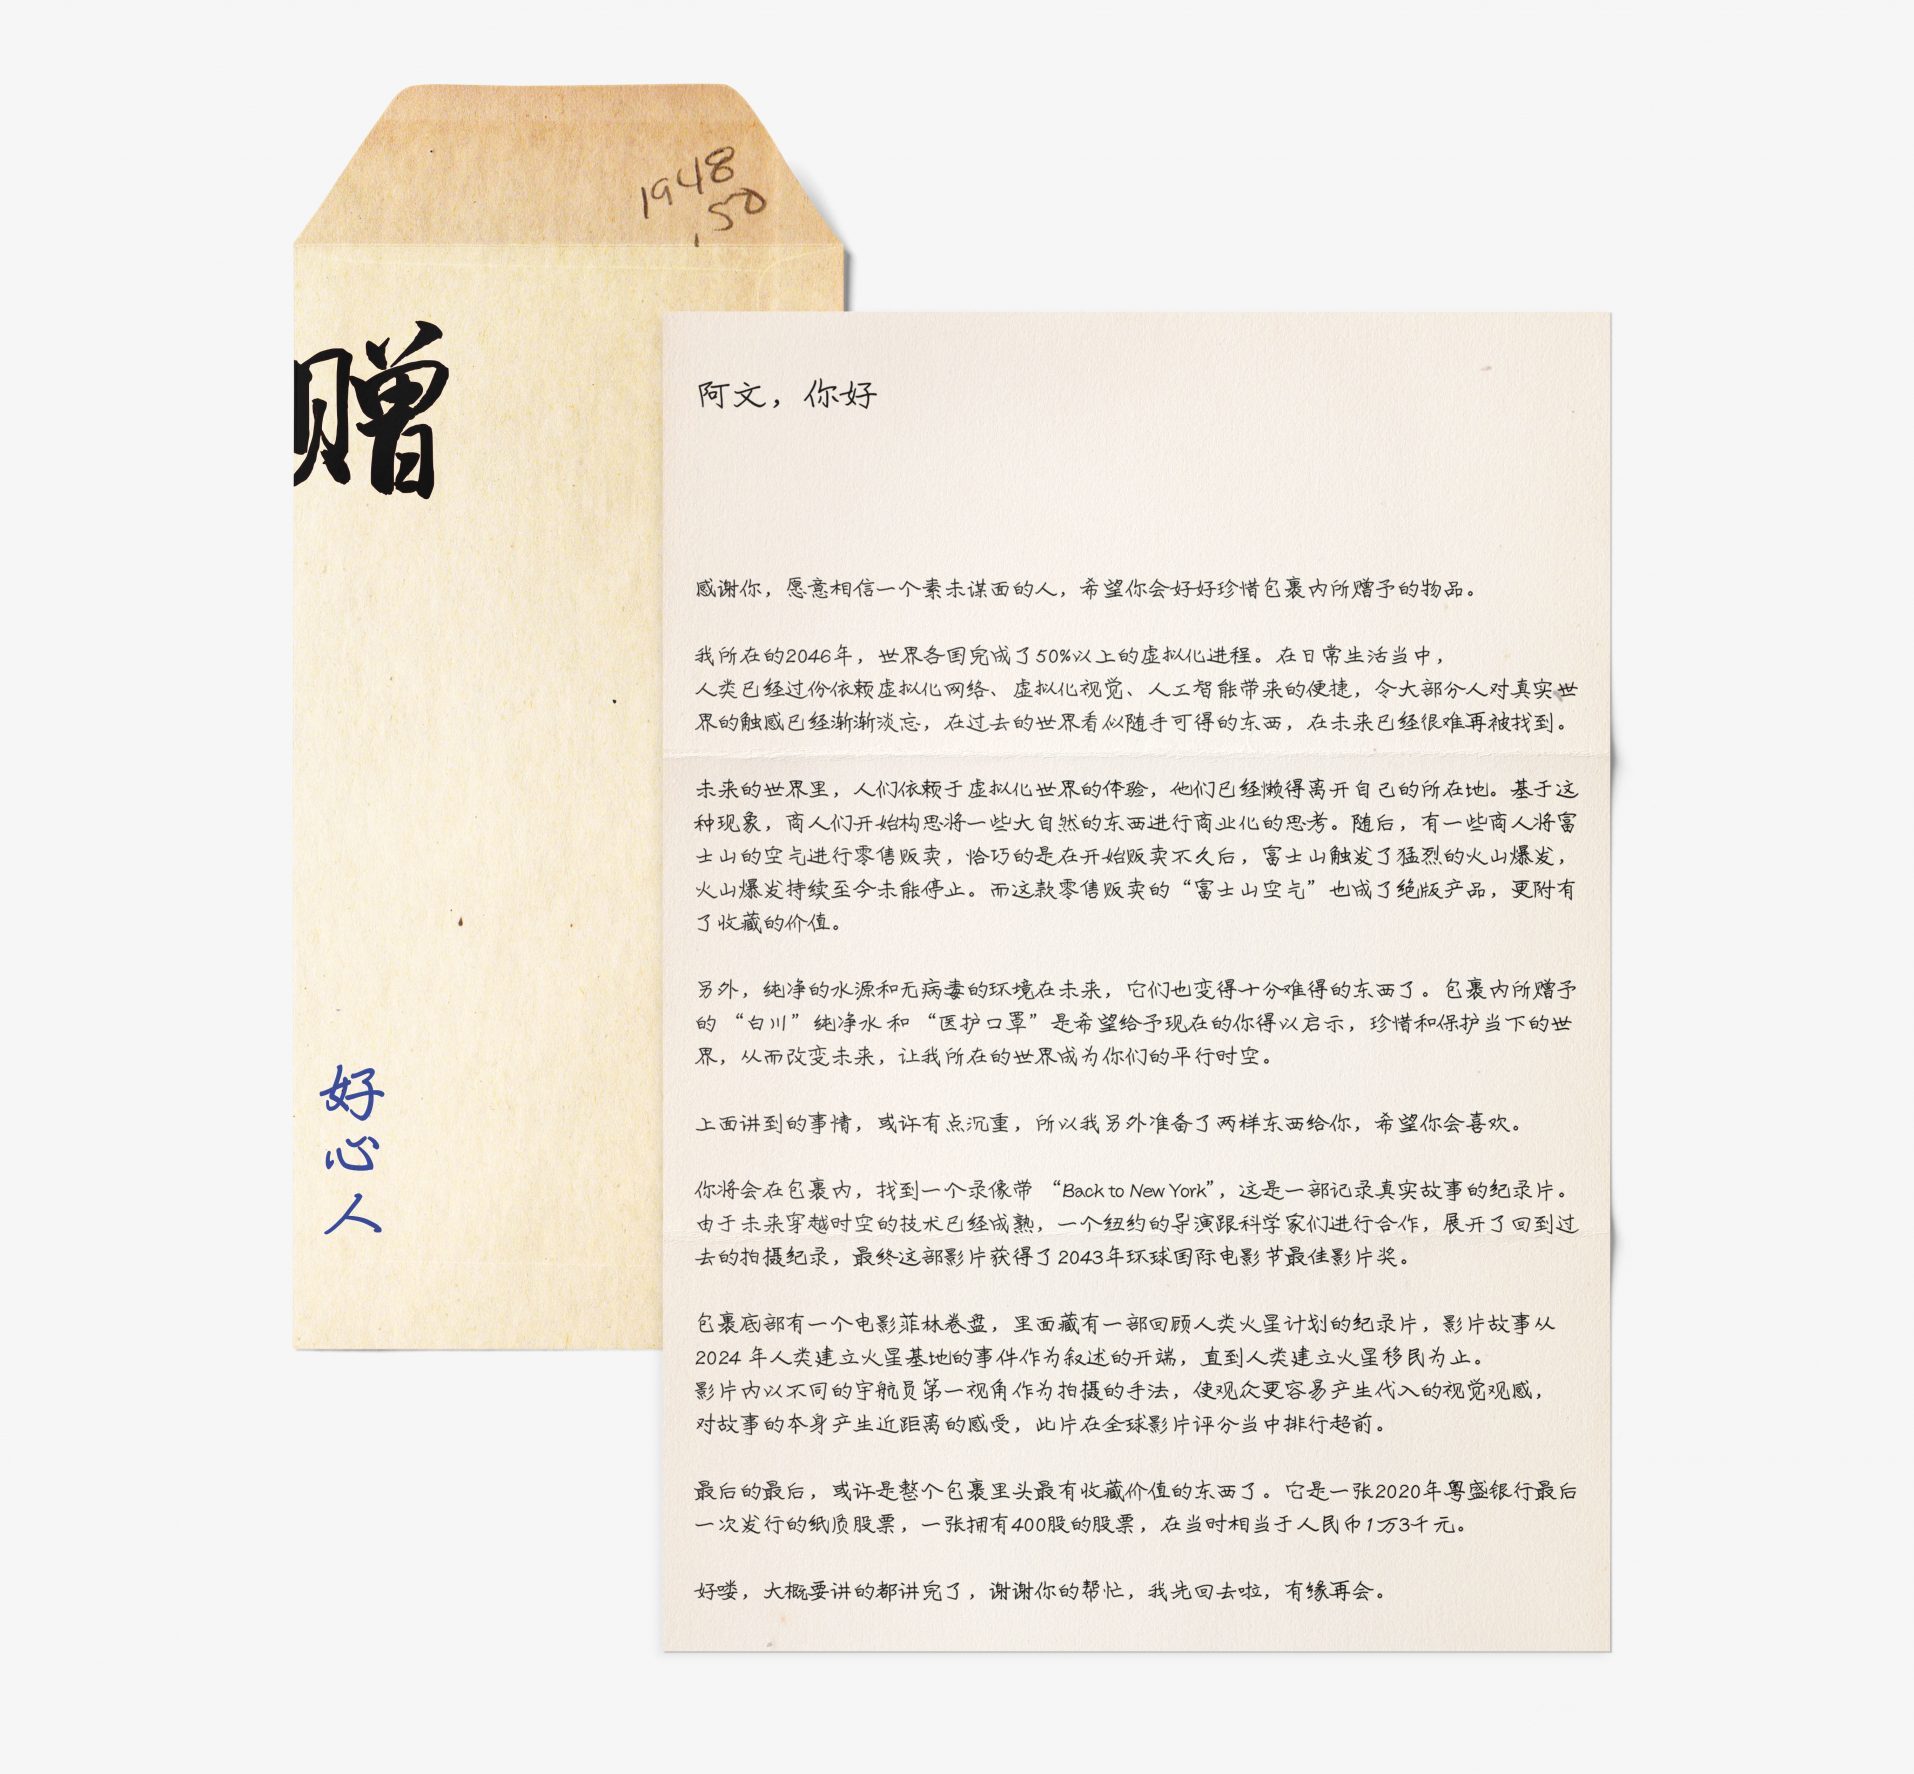 1948
.50
赠
好
心
人
阿文，你好
感谢你，愿意相信一个素未谋面的人，希望你会好好珍惜包裹内所赠予的物品。
我所在的2046年，世界各国完成了50%以上的虚拟化进程。在日常生活当中，
人类已经过份依赖虚拟化网络、虚拟化视觉、人工智能带来的便捷，令大部分人对真实世
界的触感已经渐渐淡忘，在过去的世界看似随手可得的东西，在未来已经很难再被找到。
未来的世界里，人们依赖于虚拟化世界的体验，他们已经懒得离开自己的所在地。基于这
种现象，商人们开始构思将一些大自然的东西进行商业化的思考。随后，有一些商人将富
士山的空气进行零售贩卖，恰巧的是在开始贩卖不久后，富士山触发了猛烈的火山爆发，
火山爆发持续至今未能停止。而这款零售贩卖的“富士山空气”也成了绝版产品，更附有
了收藏的价值。
另外，纯净的水源和无病毒的环境在未来，它们也变得十分难得的东西了。包裹内所赠予
的 “白川”纯净水 和 “医护口罩”是希望给予现在的你得以启示，珍惜和保护当下的世
界，从而改变未来，让我所在的世界成为你们的平行时空。
上面讲到的事情，或许有点沉重，所以我另外准备了两样东西给你，希望你会喜欢。
你将会在包裹内，找到一个录像带 “Back to New York”，这是一部记录真实故事的纪录片。
由于未来穿越时空的技术已经成熟，一个纽约的导演跟科学家们进行合作，展开了回到过
去的拍摄纪录，最终这部影片获得了2043年环球国际电影节最佳影片奖。
包裹底部有一个电影菲林卷盘，里面藏有一部回顾人类火星计划的纪录片，影片故事从
2024 年人类建立火星基地的事件作为叙述的开端，直到人类建立火星移民为止。
影片内以不同的宇航员第一视角作为拍摄的手法，使观众更容易产生代入的视觉观感，
对故事的本身产生近距离的感受，此片在全球影片评分当中排行超前。
最后的最后，或许是整个包裹里头最有收藏价值的东西了。它是一张2020年粤盛银行最后
一次发行的纸质股票，一张拥有400股的股票，在当时相当于人民币1万3千元。
好喽，大概要讲的都讲完了，谢谢你的帮忙，我先回去啦，有缘再会。